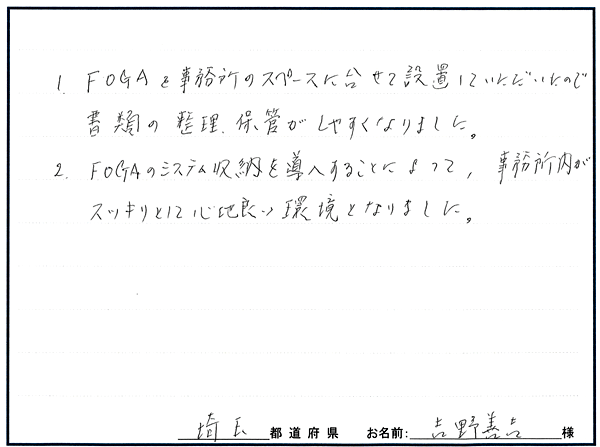 1. FOGAを事務所のスペースに合せて設置していただいたので
書類の整理、保管がしやすくなりました。
2. FOGAのシステム収納を導入することによって、事務所内が
スッキリとして心地良い環境となりました。
埼玉 都道府県 お名前: 吉野善吉 様